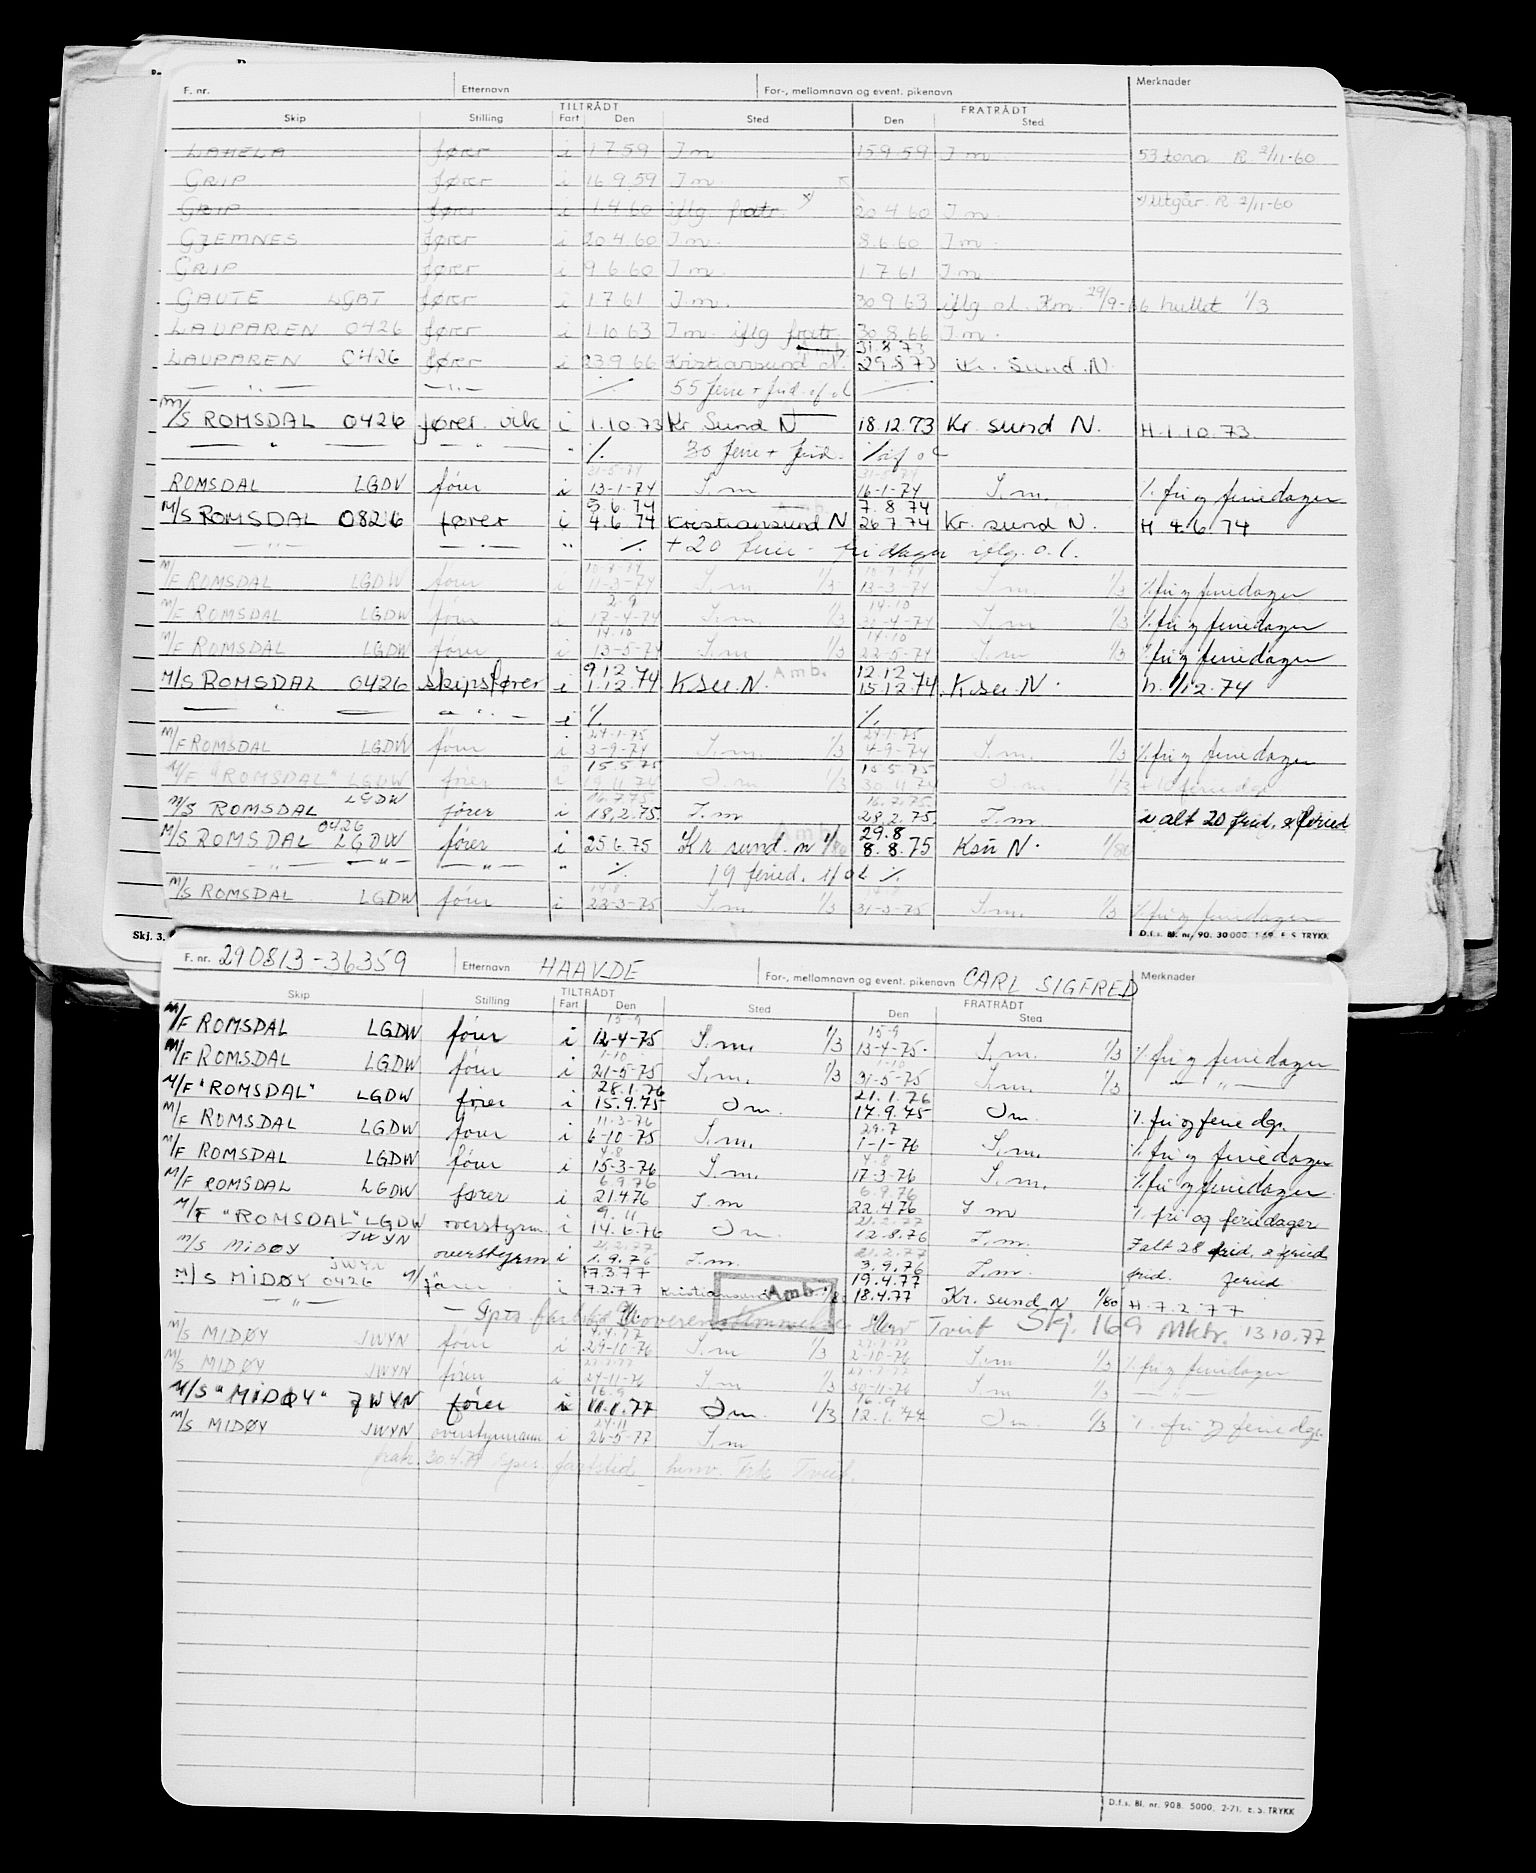 F. nr. Etternavn For-, mellomnavn og event. pikenavn Merknader
TILTRÅDT FRATRÅDT
Skip Stilling Fart Den Sted Den Sted
LAHELA fører i 1.7.59 I m 15.9.59 I m 53 tonn R 2/11-60
GRIP fører i 16.9.59 I m.
GRIP fører i 1.4.60 iflg fratr. 20.4.60 I m. x) Utgår. R 2/11-60
GJEMNES fører i 20.4.60 I m. 8.6.60 I m.
GRIP fører i 9.6.60 I m 1.7.61 I m
GAUTE LGBT fører i 1.7.61 I m. 30.9.63 iflg ol. Km. 29/9-66 hullet 1/3
LAUPAREN 0426 fører i 1.10.63 I m. iflg fratr. 30.8.66 I m.
31.8.73
LAUPAREN 0426 fører i 23.9.66 Kristiansund N. 29.8.73 Kr. Sund.N.
— " — — " — 55 ferie + frid. if ol
M/S ROMSDAL 0426 fører. vik i 1.10.73 Kr Sund N 18.12.73 Kr. sund N. H.1.10.73
— " — — " — " ٪ 30 ferie + frid. ٪ if ol
31-5-74
ROMSDAL LGDV fører i 13-1-74 I.m 16-1-74 I.m. ٪ fri og feriedager
5.6.74 7.8.74
M/S ROMSDAL 0826 fører i 4.6.74 Kristiansund N 26.7.74 Kr. sund N. H. 4.6.74
— " — — " — " ٪ + 20 ferie - fridager iflg. o.l.
M/F ROMSDAL LGDW fører i 11-3-74 I.m 1/3 13-3-74 I.m 1/3 ٪ fri og feriedager
2.9 14.10
M/F ROMSDAL LGDW fører i 17-4-74 I.m. 1/3 -4-74 I.m 1/3 ٪ fri og feriedager
14.10 14.10
M/F ROMSDAL LGDW fører i 13-5-74 I.m 1/3 22-5-74 I.m 1/3 ٪ fri og feriedager
9.12 Amb. 12.12
M/S ROMSDAL 0426 skipsfører i 1.12.74 Ksu.N. 15.12.74 K.su.N. h. 1/12.74
— " — — " — i ٪ ٪
24-1-75 24-1-75
M/F ROMSDAL LGDW fører i 3-9-74 I.m. 1/3 4-9-74 I.m. 1/3 ٪ fri og feriedager
15.5.75 15.5.75
M/F "ROMSDAL" LGDW fører i 19.11.74 I m 1/3 30.11.74 I m 1/3
16.7.75 16.7.75
M/S ROMSDAL LGDW fører i 18.2.75 I.m 28.2.75 I.m i alt 20 frid. & feried
0426 Amb. 29.8
M/S ROMSDAL LGDW fører i 25.6.75 Kr sund. N 1/80 8.8.75 Ksu N. 1/80
— " — — " — " ٪ 19 feried. if ol ٪
M/S ROMSDAL LGDW fører i 22-3-75 I.m 1/3 31-3-75 I.m. 1/3 ٪ fri og feriedager
Skj. 3. D.f.s. Bl. nr. 90. 30000. 1-69. E. S. TRYKK
F. nr. 290813-36359 Etternavn HAAVDE For-, mellomnavn og event. pikenavn CARL SIGFRED Merknader
TILTRÅDT FRATRÅDT
Skip Stilling Fart Den Sted Den Sted
15-9 15-9
M/F ROMSDAL LGDW fører i 12-4-75 I.m. 1/3 13-4-75. I.m. 1/3 ٪ fri og feriedager
1-10 1-10
M/F ROMSDAL LGDW fører i 21-5-75 I.m. 1/3 31-5-75 I.m. 1/3 — " —
28.1.76 21.1.76
M/F "ROMSDAL" LGDW fører i 15.9.75 I m. 17.9.75 I m. ٪ fri og ferie dgr.
11-3-76 29.7
M/F ROMSDAL LGDW fører i 6-10-75 I.m. 1-1-76 I.m. ٪ fri og feriedager
4.8 4.8
M/F ROMSDAL LGDW fører i 15-3-76 I.m. 17-3-76 I.m. ٪ fri og feriedager
6.9.76 6.9.76
M/F ROMSDAL LGDW fører i 21.4.76 I.m 22.4.76 I m ٪ fri og feriedager
9.11 21.2.77
M/F "ROMSDAL" LGDW overstyrm. i 14.6.76 I m. 12.8.76 I.m. I alt 28 frid. & feried
21.2.77 21.2.77
M/S MIDØY JWYN overstyrm i 1.9.76 I.m. 3.9.76 I.m frid. feried
JWYN 17.3.77 Amb. 19.4.77
M/S MIDØY 0426 fører i 7.2.77 Kristiansund 1/80 18.4.77 Kr. sund N 1/80 H. 7.2.77
— " — — Spes fartstid Uoverensstemmelse Tveit Skj. 169 Mktr. 13.10.77
4.4.77
M/S MIDØY JWYN fører i 29-10-76 I.m 1/3 2-10-76 I.m 1/3 ٪ fri og feriedager
M/S MIDØY JWYN fører i 24-11-76 I m 1/3 30-11-76 I.m 1/3 — " —
16.9 16.9
M/S "MIDØY" JWYN fører i 11.1.77 I m. 1/3 12.1.77 I m. 1/3 ٪ fri og ferie dgr.
24.11
M/S MIDØY JWYN overstyrmann i 26-5-77 I.m
fratr. 30.4.79 spes. fartstid henv. Tveit.
D.f.s. Bl. nr. 90B. 5000. 2-71. E. S. TRYKK